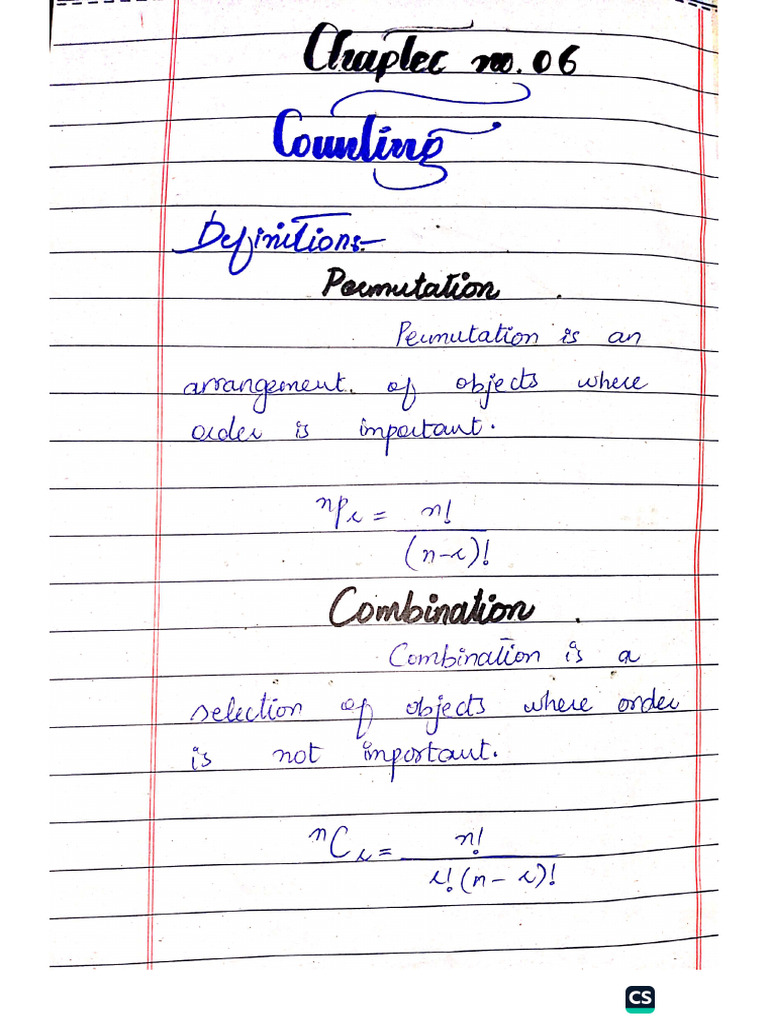 Chapter no. 06
Counting
Definitions:-
Permutation.
Permutation is an
arrangement. of objects where
order is important.
ⁿPᵣ = n!
(n-r)!
Combination.
Combination is a
selection of objects where order
is not important.
ⁿCᵣ = n!
r!(n-r)!
CS